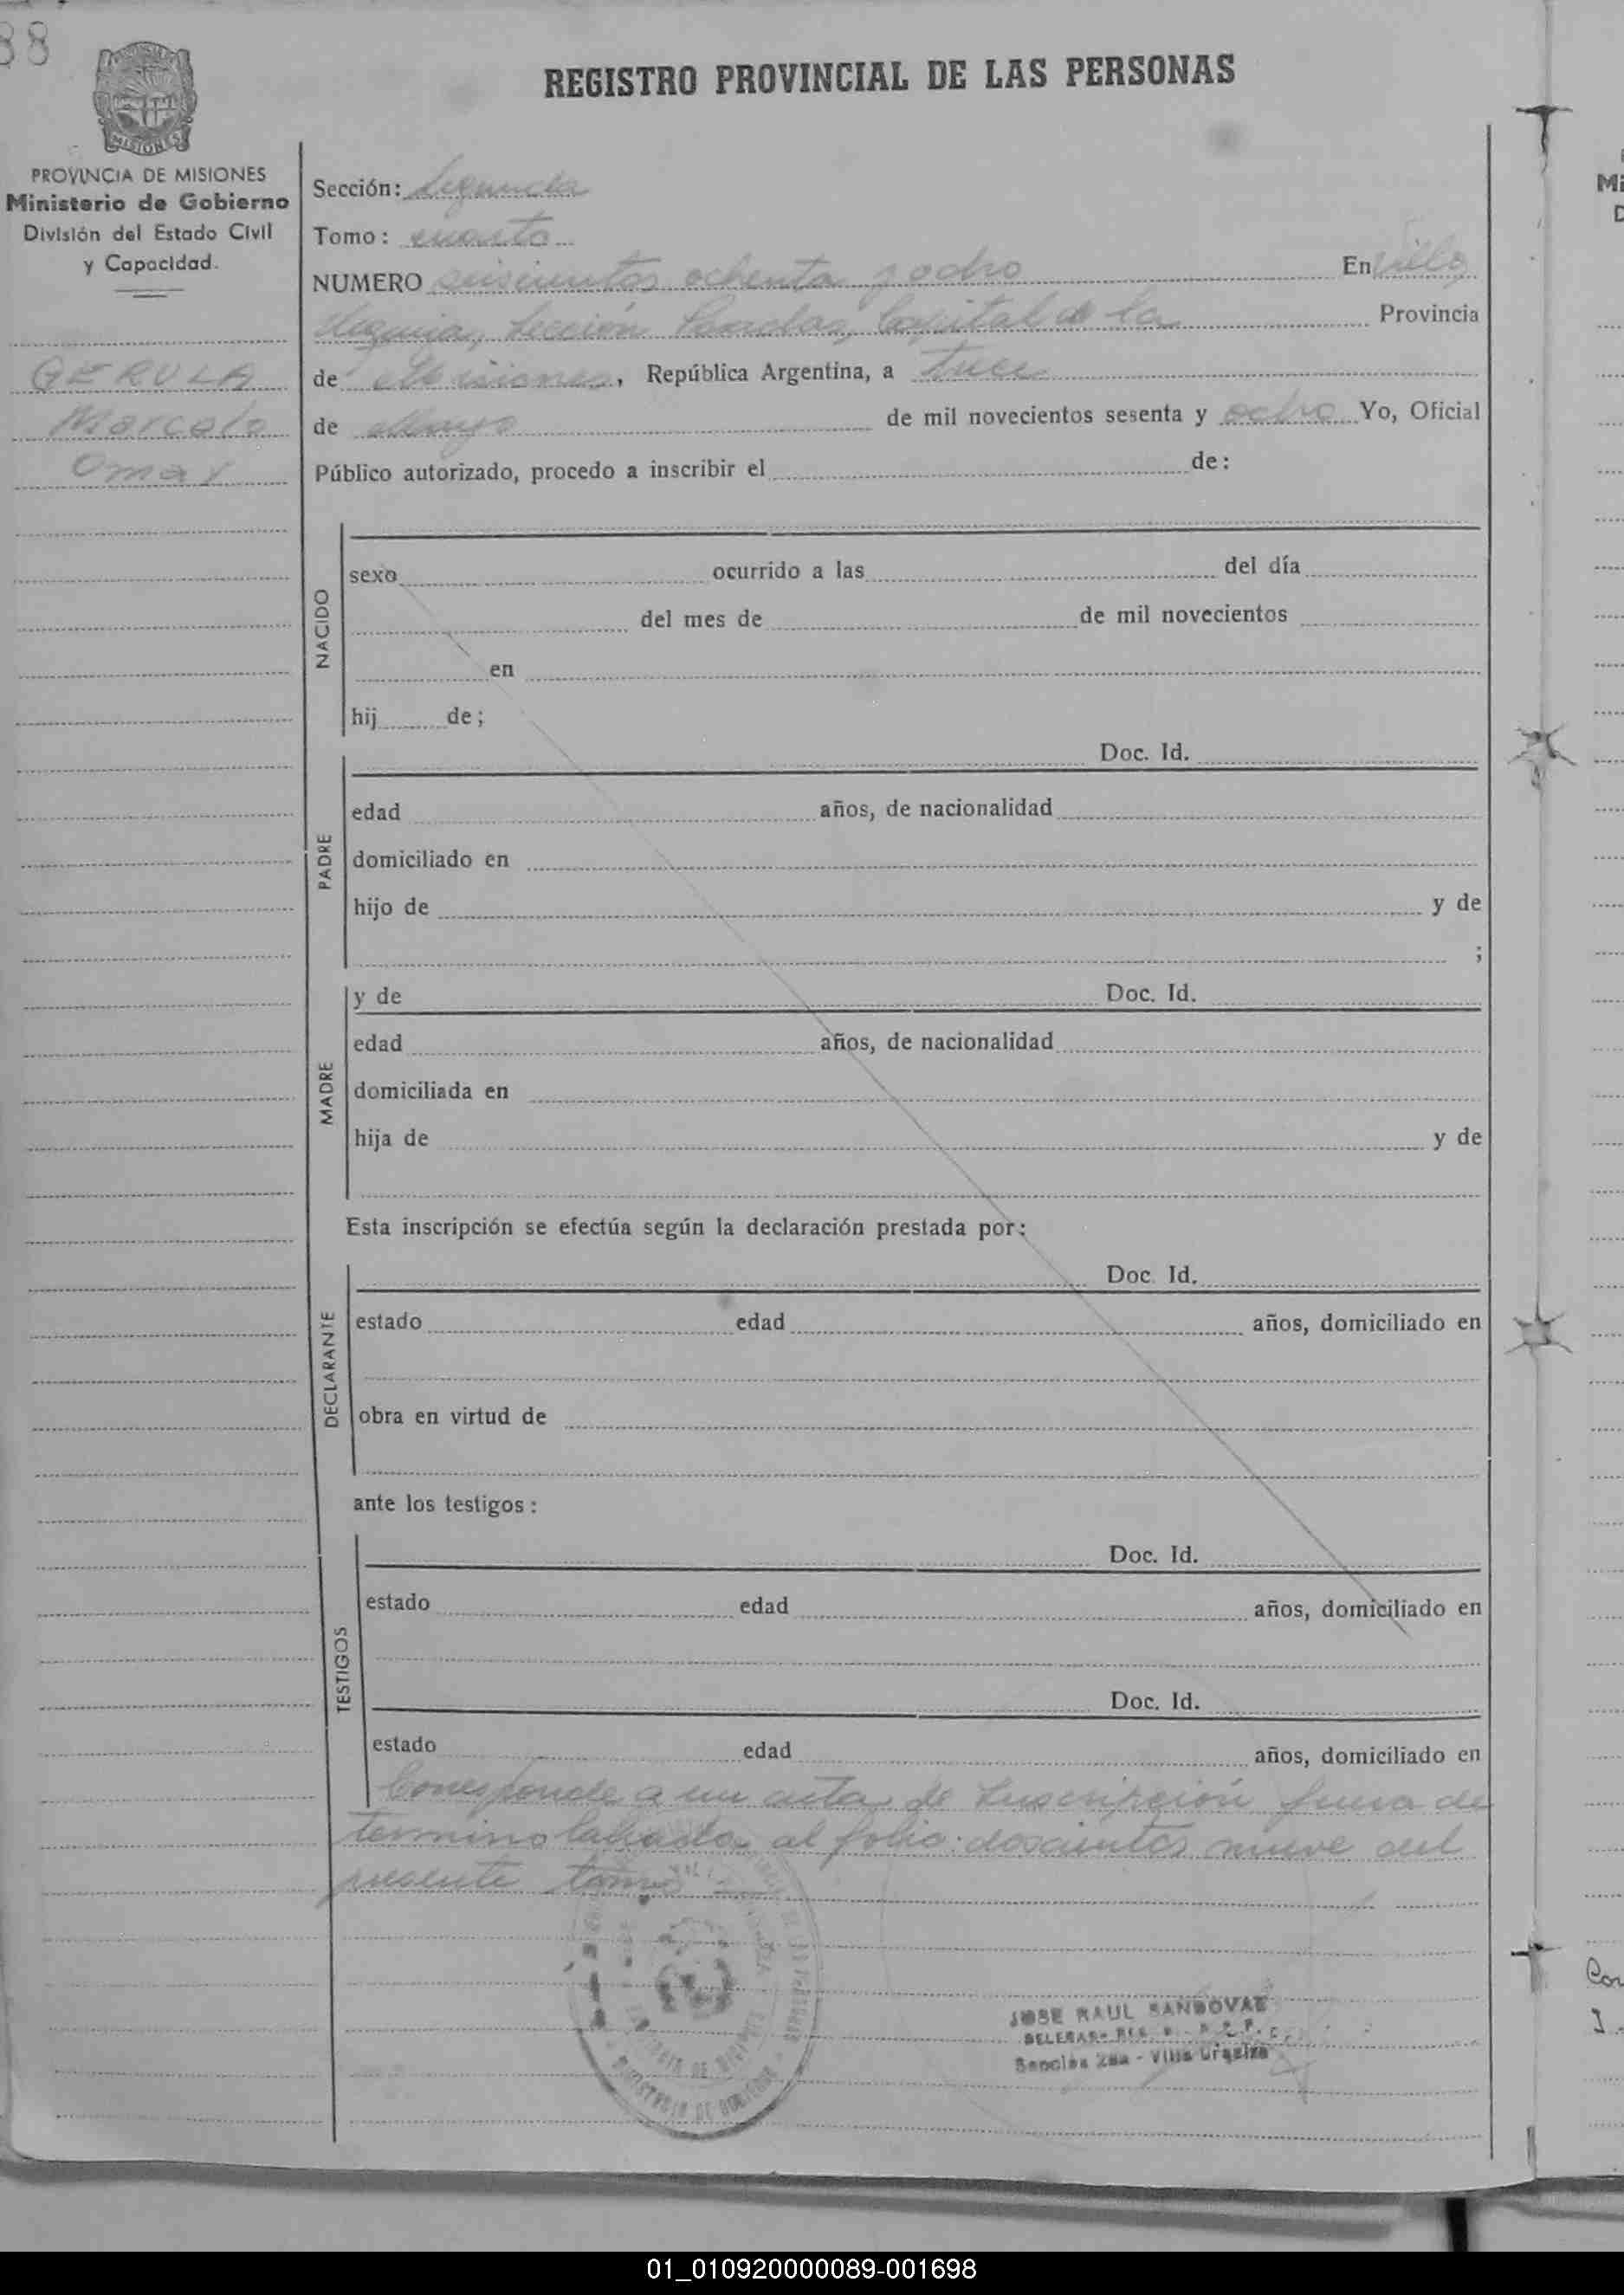 88
REGISTRO PROVINCIAL DE LAS PERSONAS
MISIONES
PROVINCIA DE MISIONES
Ministerio de Gobierno
División del Estado Civil
y Capacidad.
GERULA
Marcelo
Omar
Sección: Segunda
Tomo: cuarto
NUMERO seiscientos ochenta y ocho En Villa
Urquiza, Sección Posadas, Capital de la Provincia
de Misiones, República Argentina, a trece
de Mayo de mil novecientos sesenta y ocho Yo, Oficial
Público autorizado, procedo a inscribir el de:
NACIDO
sexo ocurrido a las del día
del mes de de mil novecientos
en
hij de;
PADRE
Doc. Id.
edad años, de nacionalidad
domiciliado en
hijo de y de
;
MADRE
y de Doc. Id.
edad años, de nacionalidad
domiciliada en
hija de y de
Esta inscripción se efectúa según la declaración prestada por:
DECLARANTE
Doc. Id.
estado edad años, domiciliado en
obra en virtud de
ante los testigos:
TESTIGOS
Doc. Id.
estado edad años, domiciliado en
Doc. Id.
estado edad años, domiciliado en
Corresponde a un acta de Inscripción fuera de
termino labrado al folio: doscientos nueve del
presente tomo
JOSE RAUL SANDOVAL
Villa Urquiza
MINISTERIO DE GOBIERNO
01_010920000089-001698